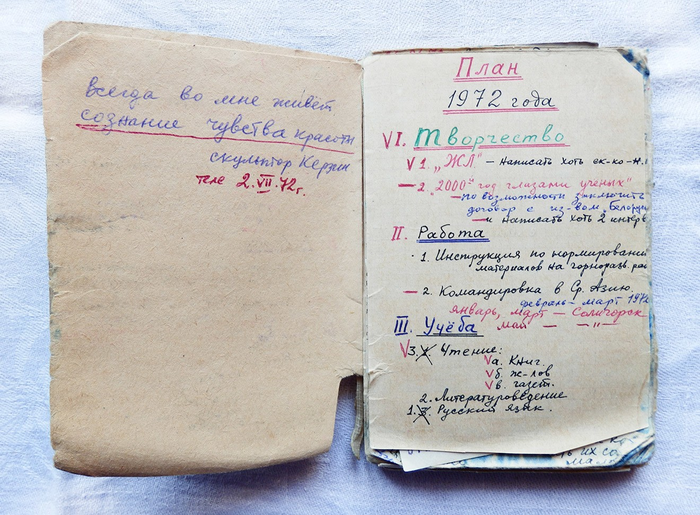 всегда во мне живёт
сознание чувства красоты
скульптор Керзин
теле 2.VII.72г.
План
1972 года
VI. Творчество
V 1. „ЖЛ" – написать хоть ск-ко-н.
– 2. „2000" год глазами учёных"
– по возможности заключить
договор с из-вом „Белорус
– и написать хоть 2 интерв
II. Работа
1. Инструкция по нормировани
материалов на горноразв. раб
– 2. Командировка в Ср. Азию.
февраль – март 1972
январь, март – Солигорск
май – – „ –
III. Учёба
V 3. Чтение:
V а. Книг.
V б. ж-лов
V в. газет.
2. Литературоведение
1. Русский язык.
ь их со